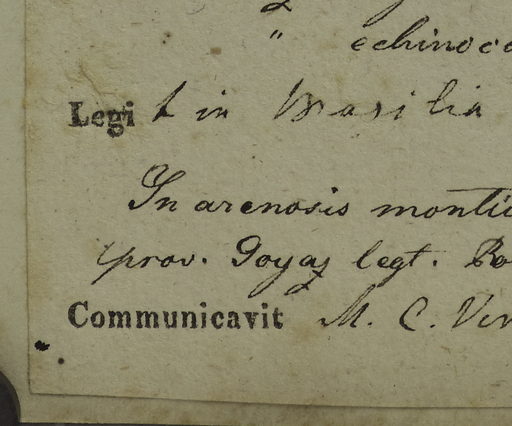 " echinoco
Legit in Brasilia
In arenosis montiu
prov. Goyaz legt. Po
Communicavit M. C. Ver